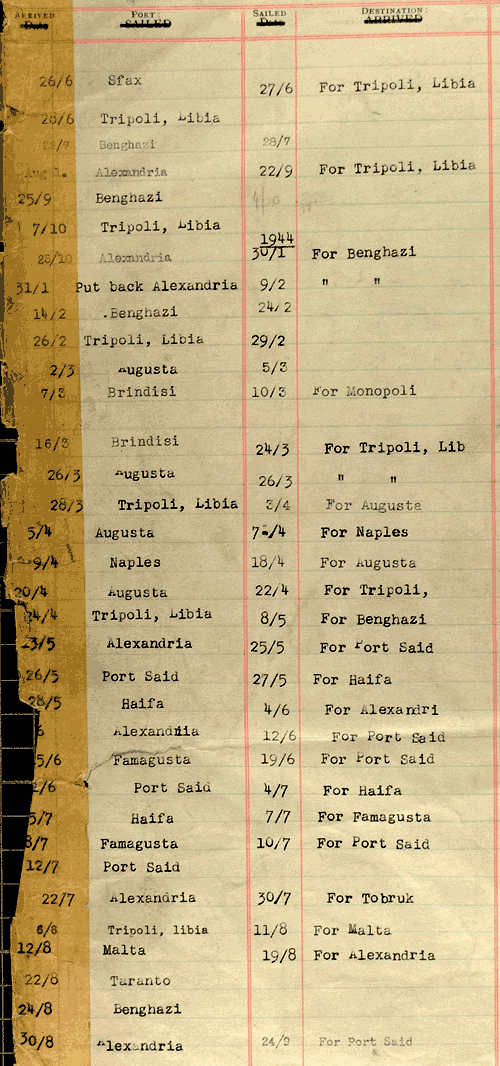 ARRIVED PORT: SAILED DESTINATION:
Date SAILED Date ARRIVED
26/6 Sfax 27/6 For Tripoli, Libia
28/6 Tripoli, Libia
Benghazi 28/7
Aug 1. Alexandria 22/9 For Tripoli, Libia
25/9 Benghazi 4/10
7/10 Tripoli, Libia
1944
28/10 Alexandria 30/1 For Benghazi
31/1 Put back Alexandria 9/2 " "
14/2 .Benghazi 24/2
26/2 Tripoli, Libia 29/2
2/3 Augusta 5/3
7/3 Brindisi 10/3 For Monopoli
16/3 Brindisi 24/3 For Tripoli, Lib
26/3 Augusta 26/3 " "
28/3 Tripoli, Libia 3/4 For Augusta
5/4 Augusta 7-/4 For Naples
9/4 Naples 18/4 For Augusta
20/4 Augusta 22/4 For Tripoli,
24/4 Tripoli, Libia 8/5 For Benghazi
23/5 Alexandria 25/5 For Port Said
26/5 Port Said 27/5 For Haifa
28/5 Haifa 4/6 For Alexandri
6 Alexandriia 12/6 For Port Said
5/6 Famagusta 19/6 For Port Said
2/6 Port Said 4/7 For Haifa
5/7 Haifa 7/7 For Famagusta
8/7 Famagusta 10/7 For Port Said
12/7 Port Said
22/7 Alexandria 30/7 For Tobruk
6/8 Tripoli, libia 11/8 For Malta
12/8 Malta 19/8 For Alexandria
22/8 Taranto
24/8 Benghazi
30/8 Alexandria 24/9 For Port Said